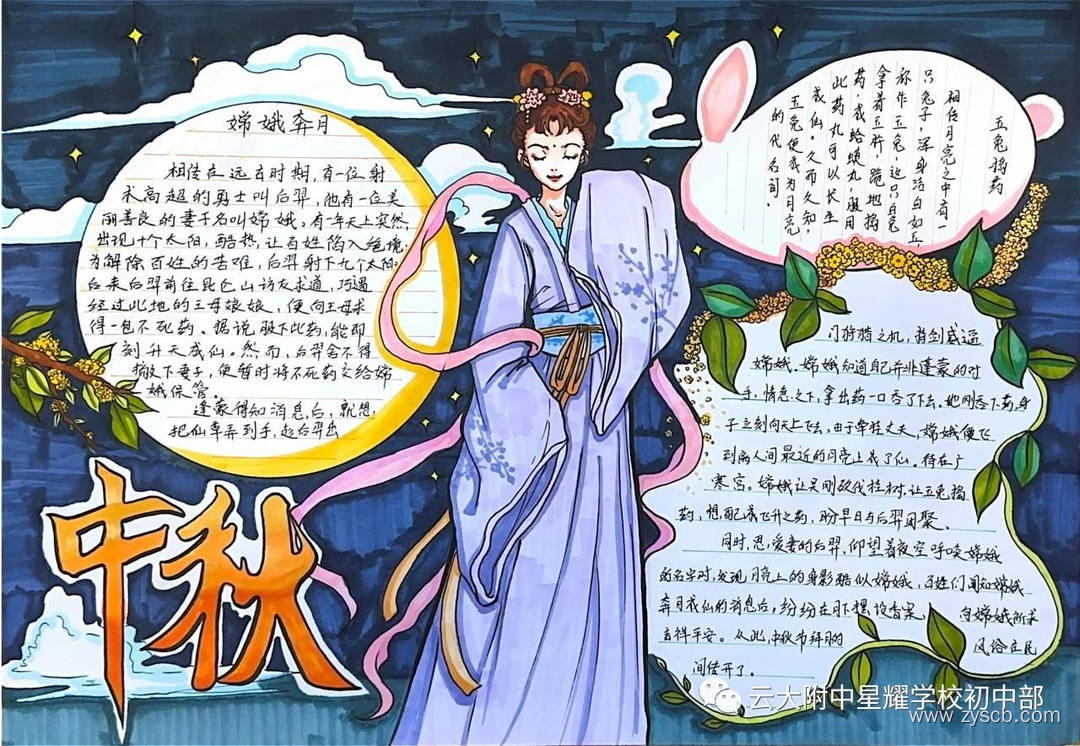 嫦娥奔月
相传在远古时期,有一位射
术高超的勇士叫后羿,他有一位美
丽善良的妻子名叫嫦娥。有一年天上突然
出现十个太阳,酷热,让百姓陷入绝境。
为解除百姓的苦难,后羿射下九个太阳。
后来后羿前往昆仑山访友求道,巧遇
经过此地的王母娘娘,便向王母求
得一包不死药。据说服下此药,能即
刻升天成仙。然而,后羿舍不得
抛下妻子,便暂时将不死药交给嫦
娥保管。
蓬蒙得知消息后,就想
把仙草弄到手,趁后羿出
中秋
玉兔捣药
相传月亮之中有一
只兔子,浑身洁白如玉,
称作玉兔,这只白兔
拿着玉杵,跪地捣
药,成蛤蟆丸,服用
此药丸可以长生
成仙。久而久知,
玉兔便成为月亮
的代名词。
门狩猎之机,背剑威逼
嫦娥。嫦娥知道自己并非蓬蒙的对
手,情急之下,拿出药一口吞了下去。她刚吞下药,身
子立刻向天上飞去。由于牵挂丈夫,嫦娥便飞
到离人间最近的月亮上成了仙。待在广
寒宫。嫦娥让吴刚砍伐桂树,让玉兔捣
药,想配飞升之药,盼早日与后羿团聚。
同时,思念爱妻的后羿,仰望着夜空呼唤嫦娥
的名字时,发现月亮上的身影酷似嫦娥,百姓们闻知嫦娥
奔月成仙的消息后,纷纷在月下摆设香案 向嫦娥祈求
吉祥平安。从此,中秋节拜月的 风俗在民
间传开了。
云大附中星耀学校初中部
www.zyscb.com